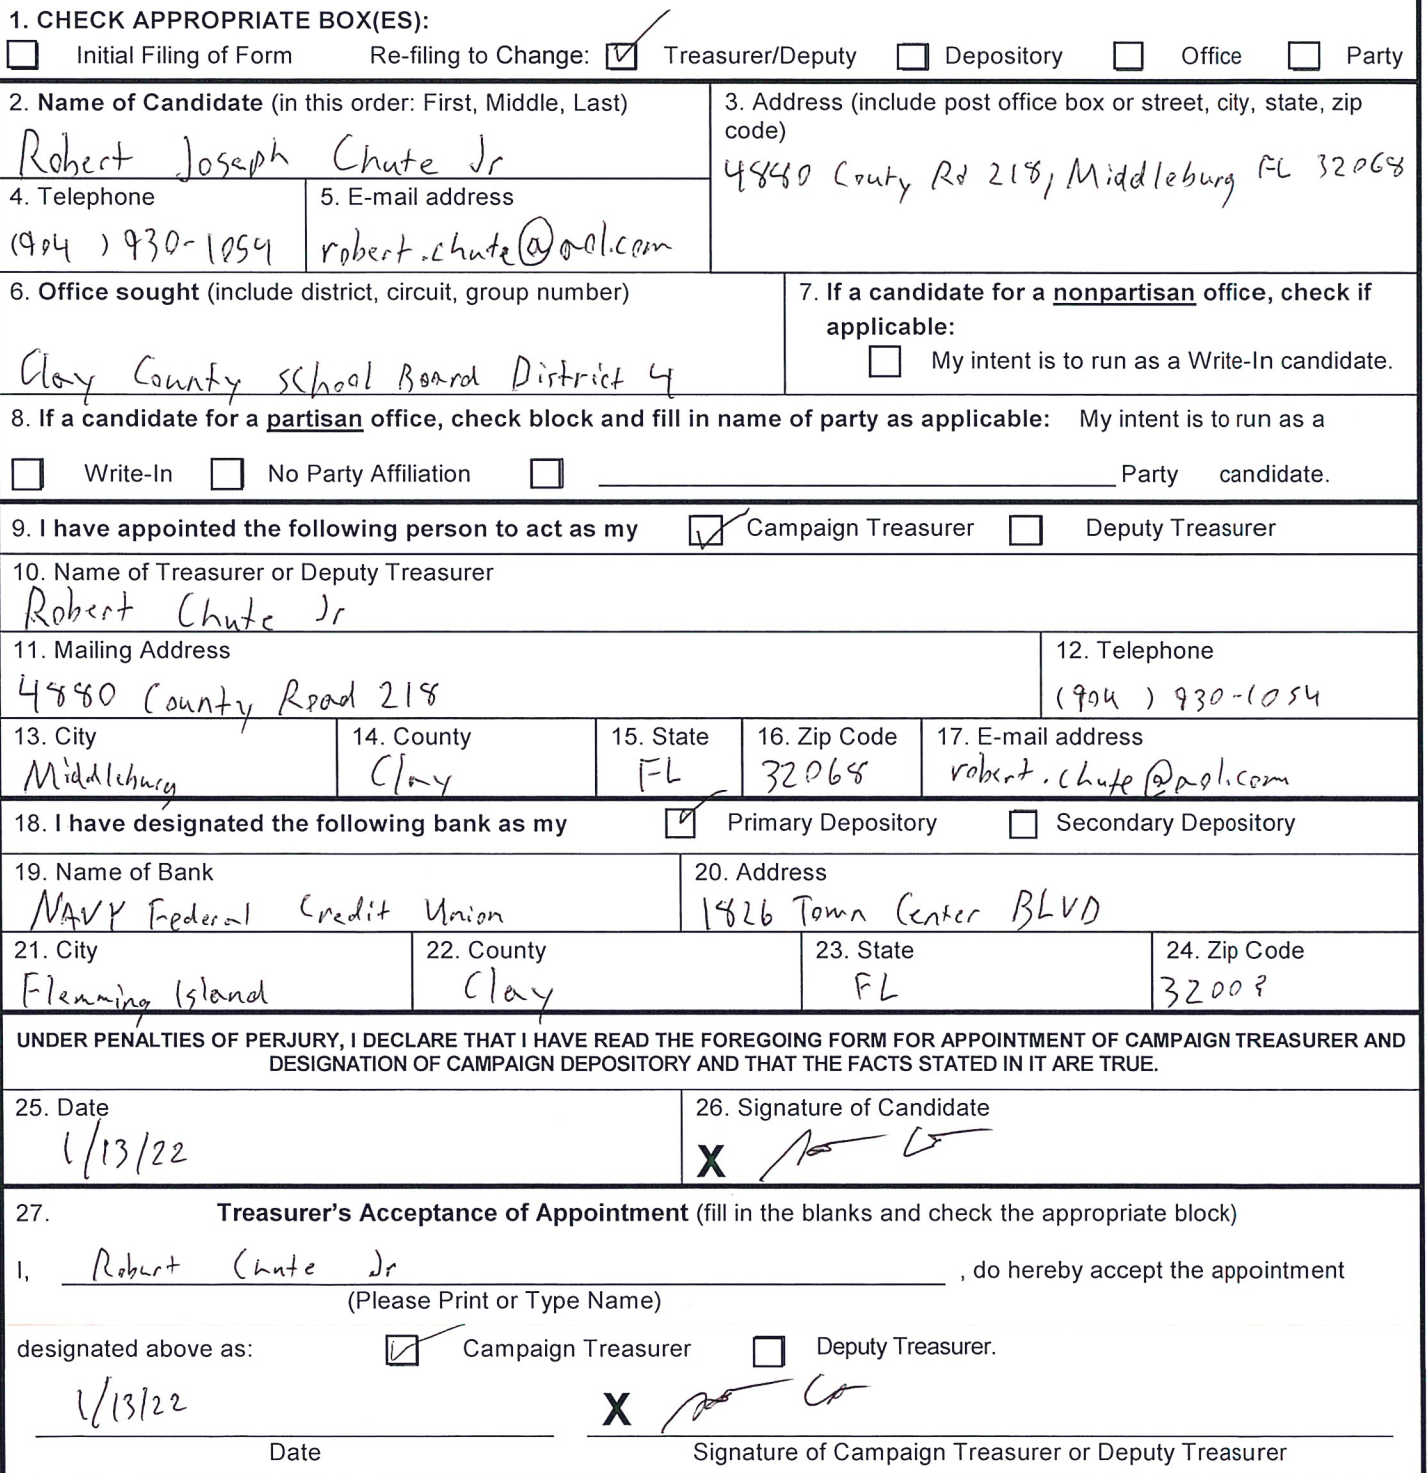 1. CHECK APPROPRIATE BOX(ES):
Initial Filing of Form Re-filing to Change: Treasurer/Deputy Depository Office Party
2. Name of Candidate (in this order: First, Middle, Last)
Robert Joseph Chute Jr
3. Address (include post office box or street, city, state, zip
code)
4880 Couty Rd 218, Middleburg FL 32068
4. Telephone
(904 ) 930-1054
5. E-mail address
robert.chute@aol.com
6. Office sought (include district, circuit, group number)
Clay County School Board District 4
7. If a candidate for a nonpartisan office, check if
applicable:
My intent is to run as a Write-In candidate.
8. If a candidate for a partisan office, check block and fill in name of party as applicable: My intent is to run as a
Write-In No Party Affiliation Party candidate.
9. I have appointed the following person to act as my Campaign Treasurer Deputy Treasurer
10. Name of Treasurer or Deputy Treasurer
Robert Chute Jr
11. Mailing Address
4880 County Road 218
12. Telephone
(904 ) 930-1054
13. City
Middleburg
14. County
Clay
15. State
FL
16. Zip Code
32068
17. E-mail address
robert.chute@aol.com
18. I have designated the following bank as my Primary Depository Secondary Depository
19. Name of Bank
NAVY Federal Credit Union
20. Address
1826 Town Center BLVD
21. City
Flemming Island
22. County
Clay
23. State
FL
24. Zip Code
UNDER PENALTIES OF PERJURY, I DECLARE THAT I HAVE READ THE FOREGOING FORM FOR APPOINTMENT OF CAMPAIGN TREASURER AND
DESIGNATION OF CAMPAIGN DEPOSITORY AND THAT THE FACTS STATED IN IT ARE TRUE.
25. Date
1/13/22
26. Signature of Candidate
X
27. Treasurer's Acceptance of Appointment (fill in the blanks and check the appropriate block)
I, Robert Chute Jr , do hereby accept the appointment
(Please Print or Type Name)
designated above as: Campaign Treasurer Deputy Treasurer.
1/13/22 X
Date Signature of Campaign Treasurer or Deputy Treasurer